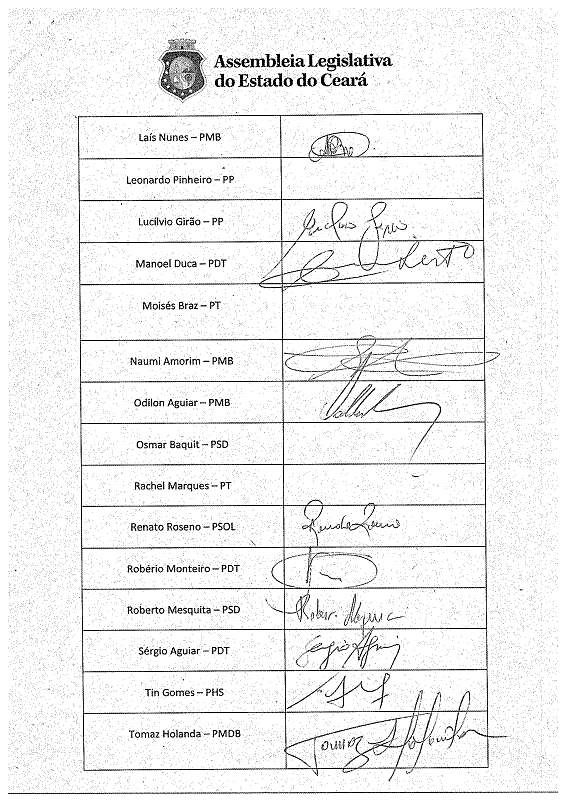 Assembleia Legislativa
do Estado do Ceará
Laís Nunes – PMB
Leonardo Pinheiro – PP
Lucílvio Girão – PP
Manoel Duca – PDT
Moisés Braz – PT
Naumi Amorim – PMB
Odilon Aguiar – PMB
Osmar Baquit – PSD
Rachel Marques – PT
Renato Roseno – PSOL
Robério Monteiro – PDT
Roberto Mesquita – PSD
Sérgio Aguiar – PDT
Sergio Aguiar
Tin Gomes – PHS
Tomaz Holanda – PMDB
Tomaz Holanda